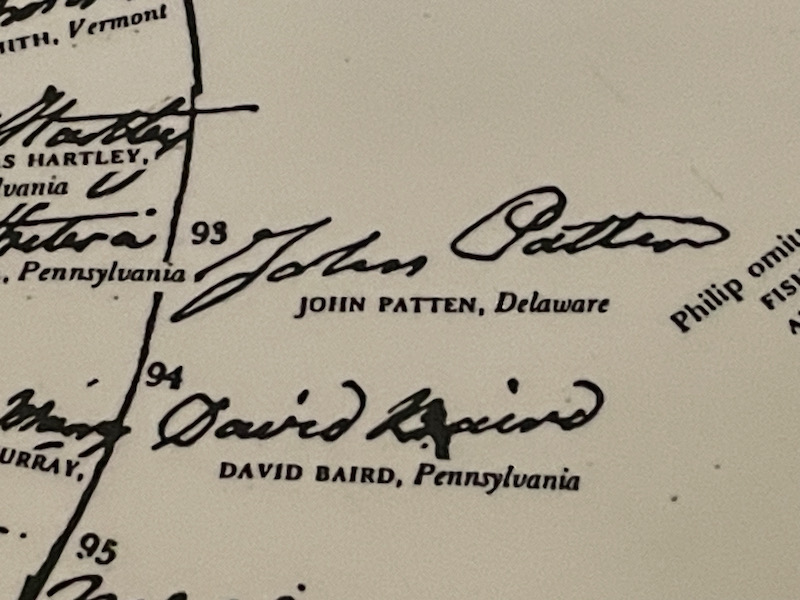 ITH, Vermont
Hartley
S HARTLEY,
lvania
93
John Patten
, Pennsylvania
JOHN PATTEN, Delaware
Philip omitt
FISH
94
David Baird
URRAY,
DAVID BAIRD, Pennsylvania
95